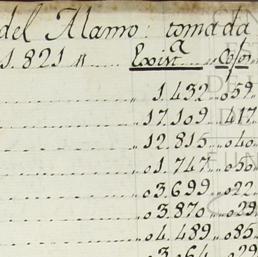 del Alamo: tomada
1.821 " Exist.a Cofn
" 1.432 " 059
" 17.109 " 417
" 12.815 " 040
" 01.747 " 050
" 03.699 " 022
" 03.870 " 029
" 04.489 " 085